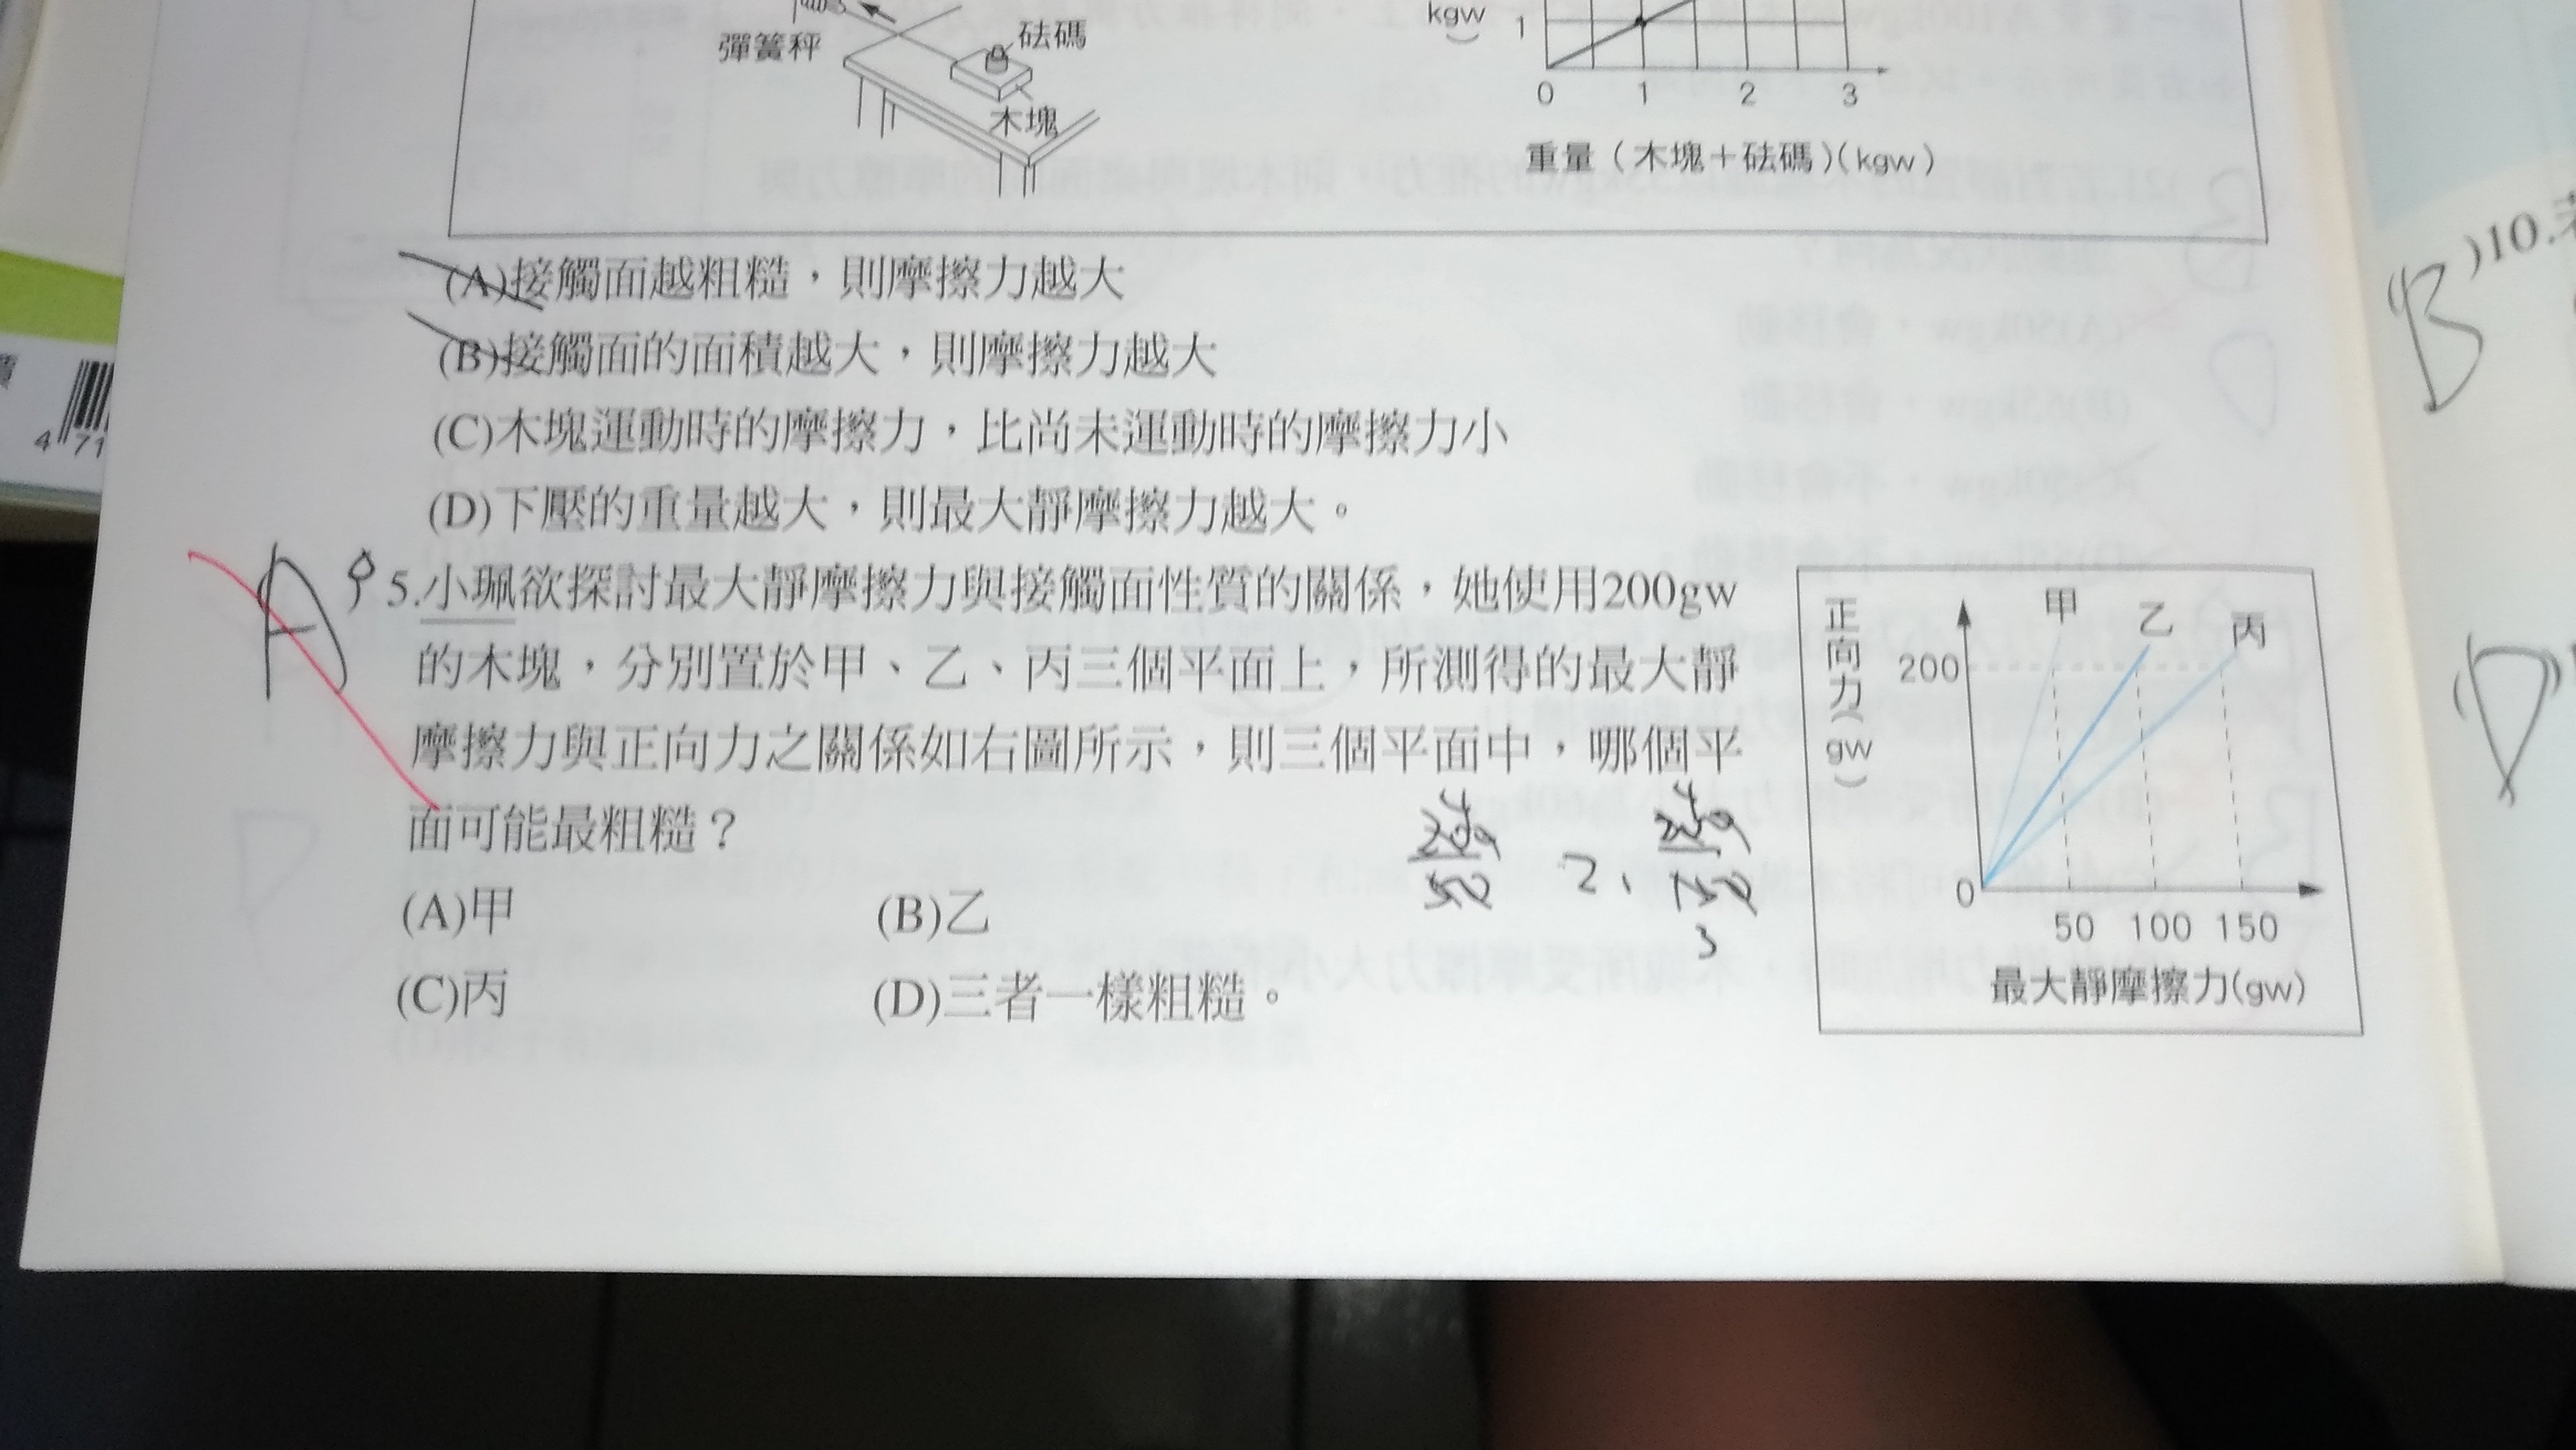 彈簧秤
砝碼
木塊
kgw
1
0 1 2 3
重量（木塊＋砝碼）(kgw)
(A)接觸面越粗糙，則摩擦力越大
(B)接觸面的面積越大，則摩擦力越大
(C)木塊運動時的摩擦力，比尚未運動時的摩擦力小
(D)下壓的重量越大，則最大靜摩擦力越大。
A 5.小珮欲探討最大靜摩擦力與接觸面性質的關係，她使用200gw
的木塊，分別置於甲、乙、丙三個平面上，所測得的最大靜
摩擦力與正向力之關係如右圖所示，則三個平面中，哪個平
面可能最粗糙？
(A)甲 (B)乙
(C)丙 (D)三者一樣粗糙。
4
200
50
2、
4
200
150
3
正向力(gw)
甲 乙 丙
200
0
50 100 150
最大靜摩擦力(gw)
B )10.
D
4 71